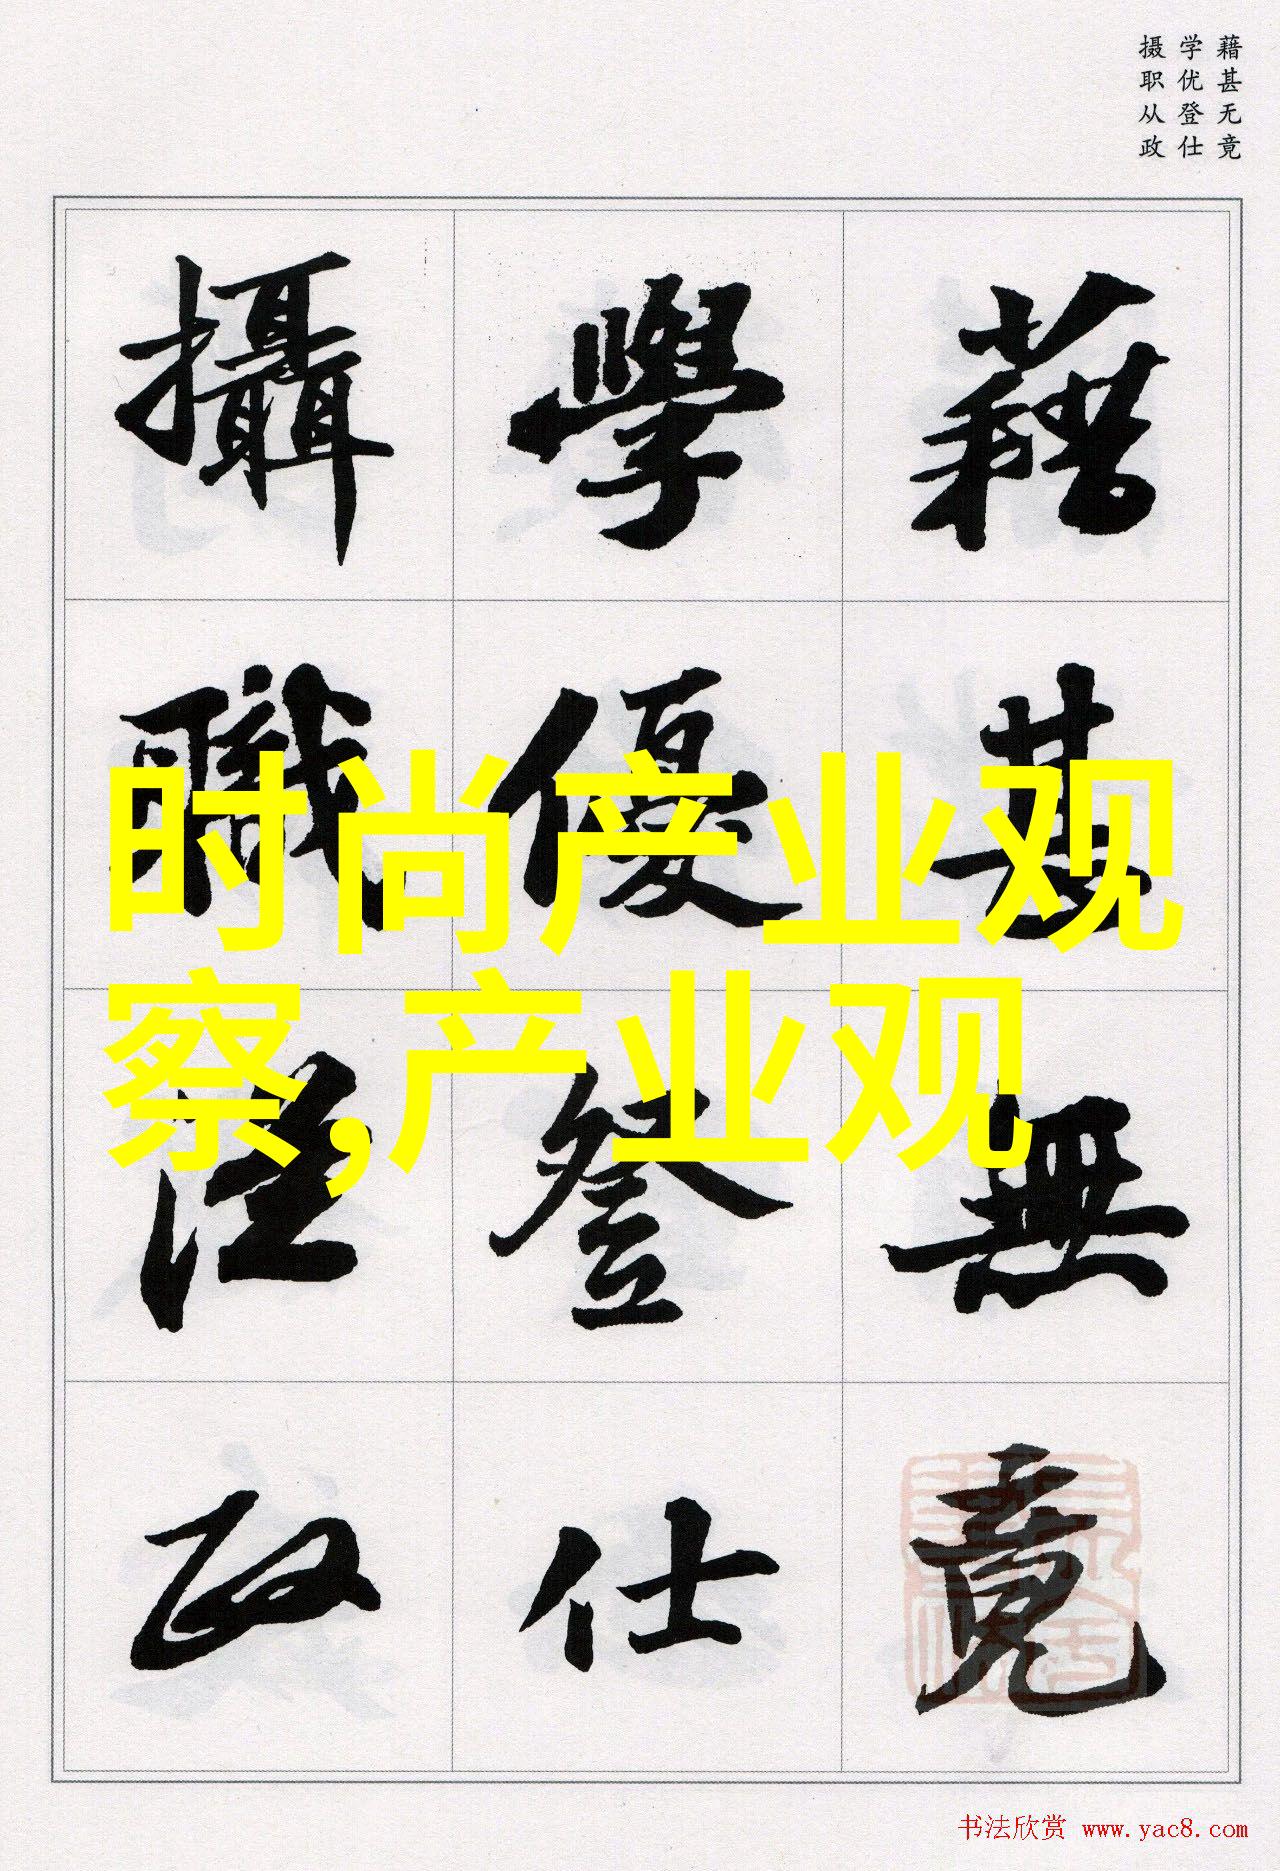 藉甚无竟
学优登仕
摄职从政
藉甚無竟
學優登仕
攝職從政
时尚产业观
察,产业观
书法欣赏 www.yac8.com